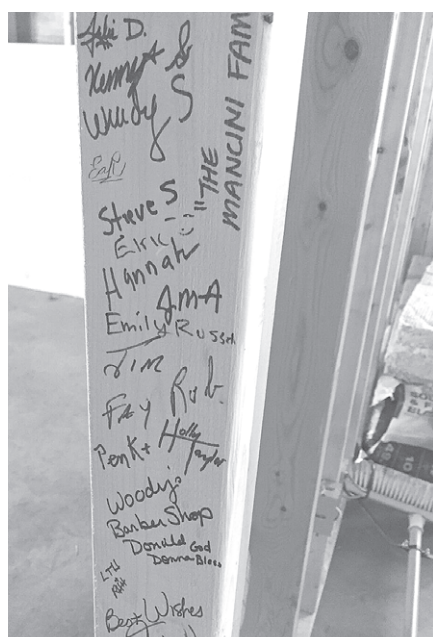 Julie D.
Kenny + S
Wendy S
THE
MANCINI FAM
Steve S
Eric
Hannah
JMA
Emily Russ
Jim
Fay Rob.
Holly
Taylor
Woody's
Barber Shop
Donald God
Donna Bless
LTU
Best Wishes